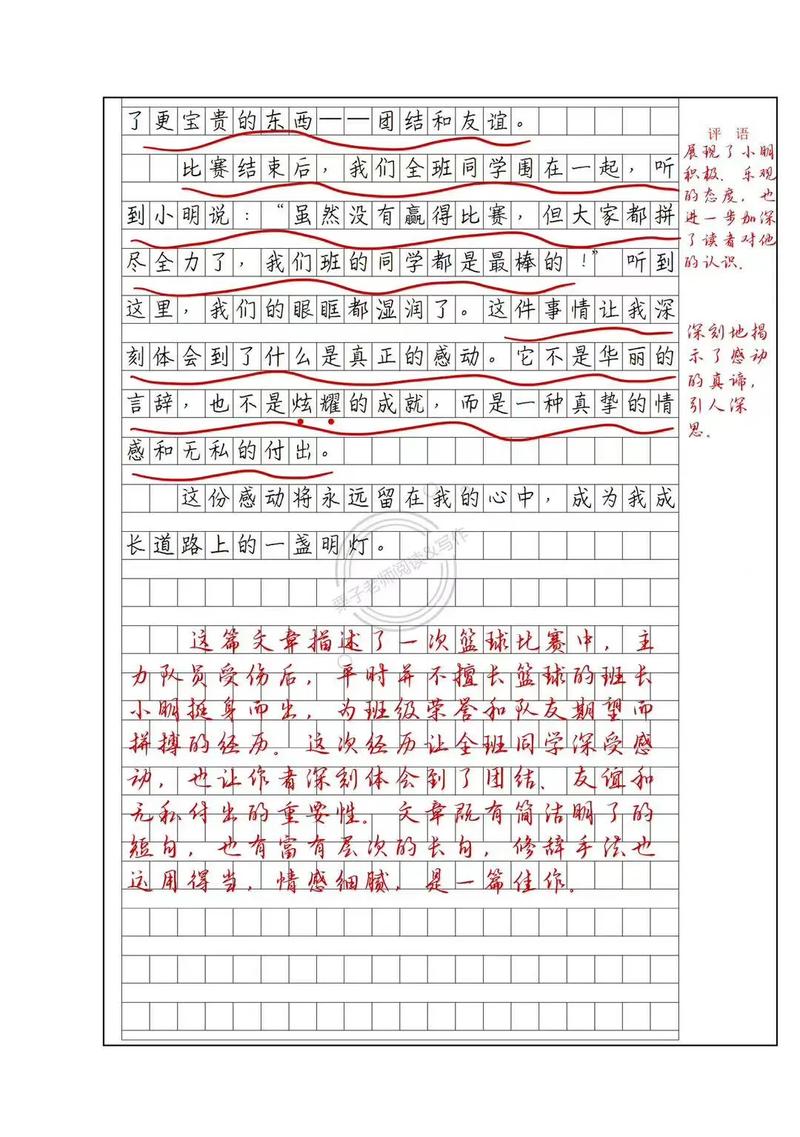 了更宝贵的东西——团结和友谊。
比赛结束后，我们全班同学围在一起，听
到小明说：“虽然没有赢得比赛，但大家都拼
尽全力了，我们班的同学都是最棒的！”听到
这里，我们的眼眶都湿润了。这件事情让我深
刻体会到了什么是真正的感动。它不是华丽的
言辞，也不是炫耀的成就，而是一种真挚的情
感和无私的付出。
这份感动将永远留在我的心中，成为我成
长道路上的一盏明灯。
评语
展现了小明
积极、乐观
的态度，也
进一步加深
了读者对他
的认识。
深刻地揭
示了感动
的真谛，
引人深
思。
栗子老师阅读&写作
这篇文章描述了一次篮球比赛中，主
力队员受伤后，平时并不擅长篮球的班长
小明挺身而出，为班级荣誉和队友期望而
拼搏的经历。这次经历让全班同学深受感
动，也让作者深刻体会到了团结、友谊和
无私付出的重要性。文章既有简洁明了的
短句，也有富有层次的长句，修辞手法也
运用得当，情感细腻，是一篇佳作。